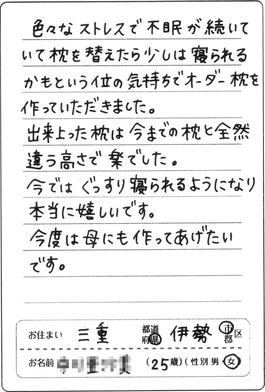 色々なストレスで不眠が続いて
いて枕を替えたら少しは寝られる
かもという位の気持ちでオーダー枕を
作っていただきました。
出来上った枕は今までの枕と全然
違う高さで楽でした。
今ではぐっすり寝られるようになり
本当に嬉しいです。
今度は母にも作ってあげたい
です。
お住まい 三重 都道府県 伊勢 市区郡
お名前 (25歳)(性別 男 女)